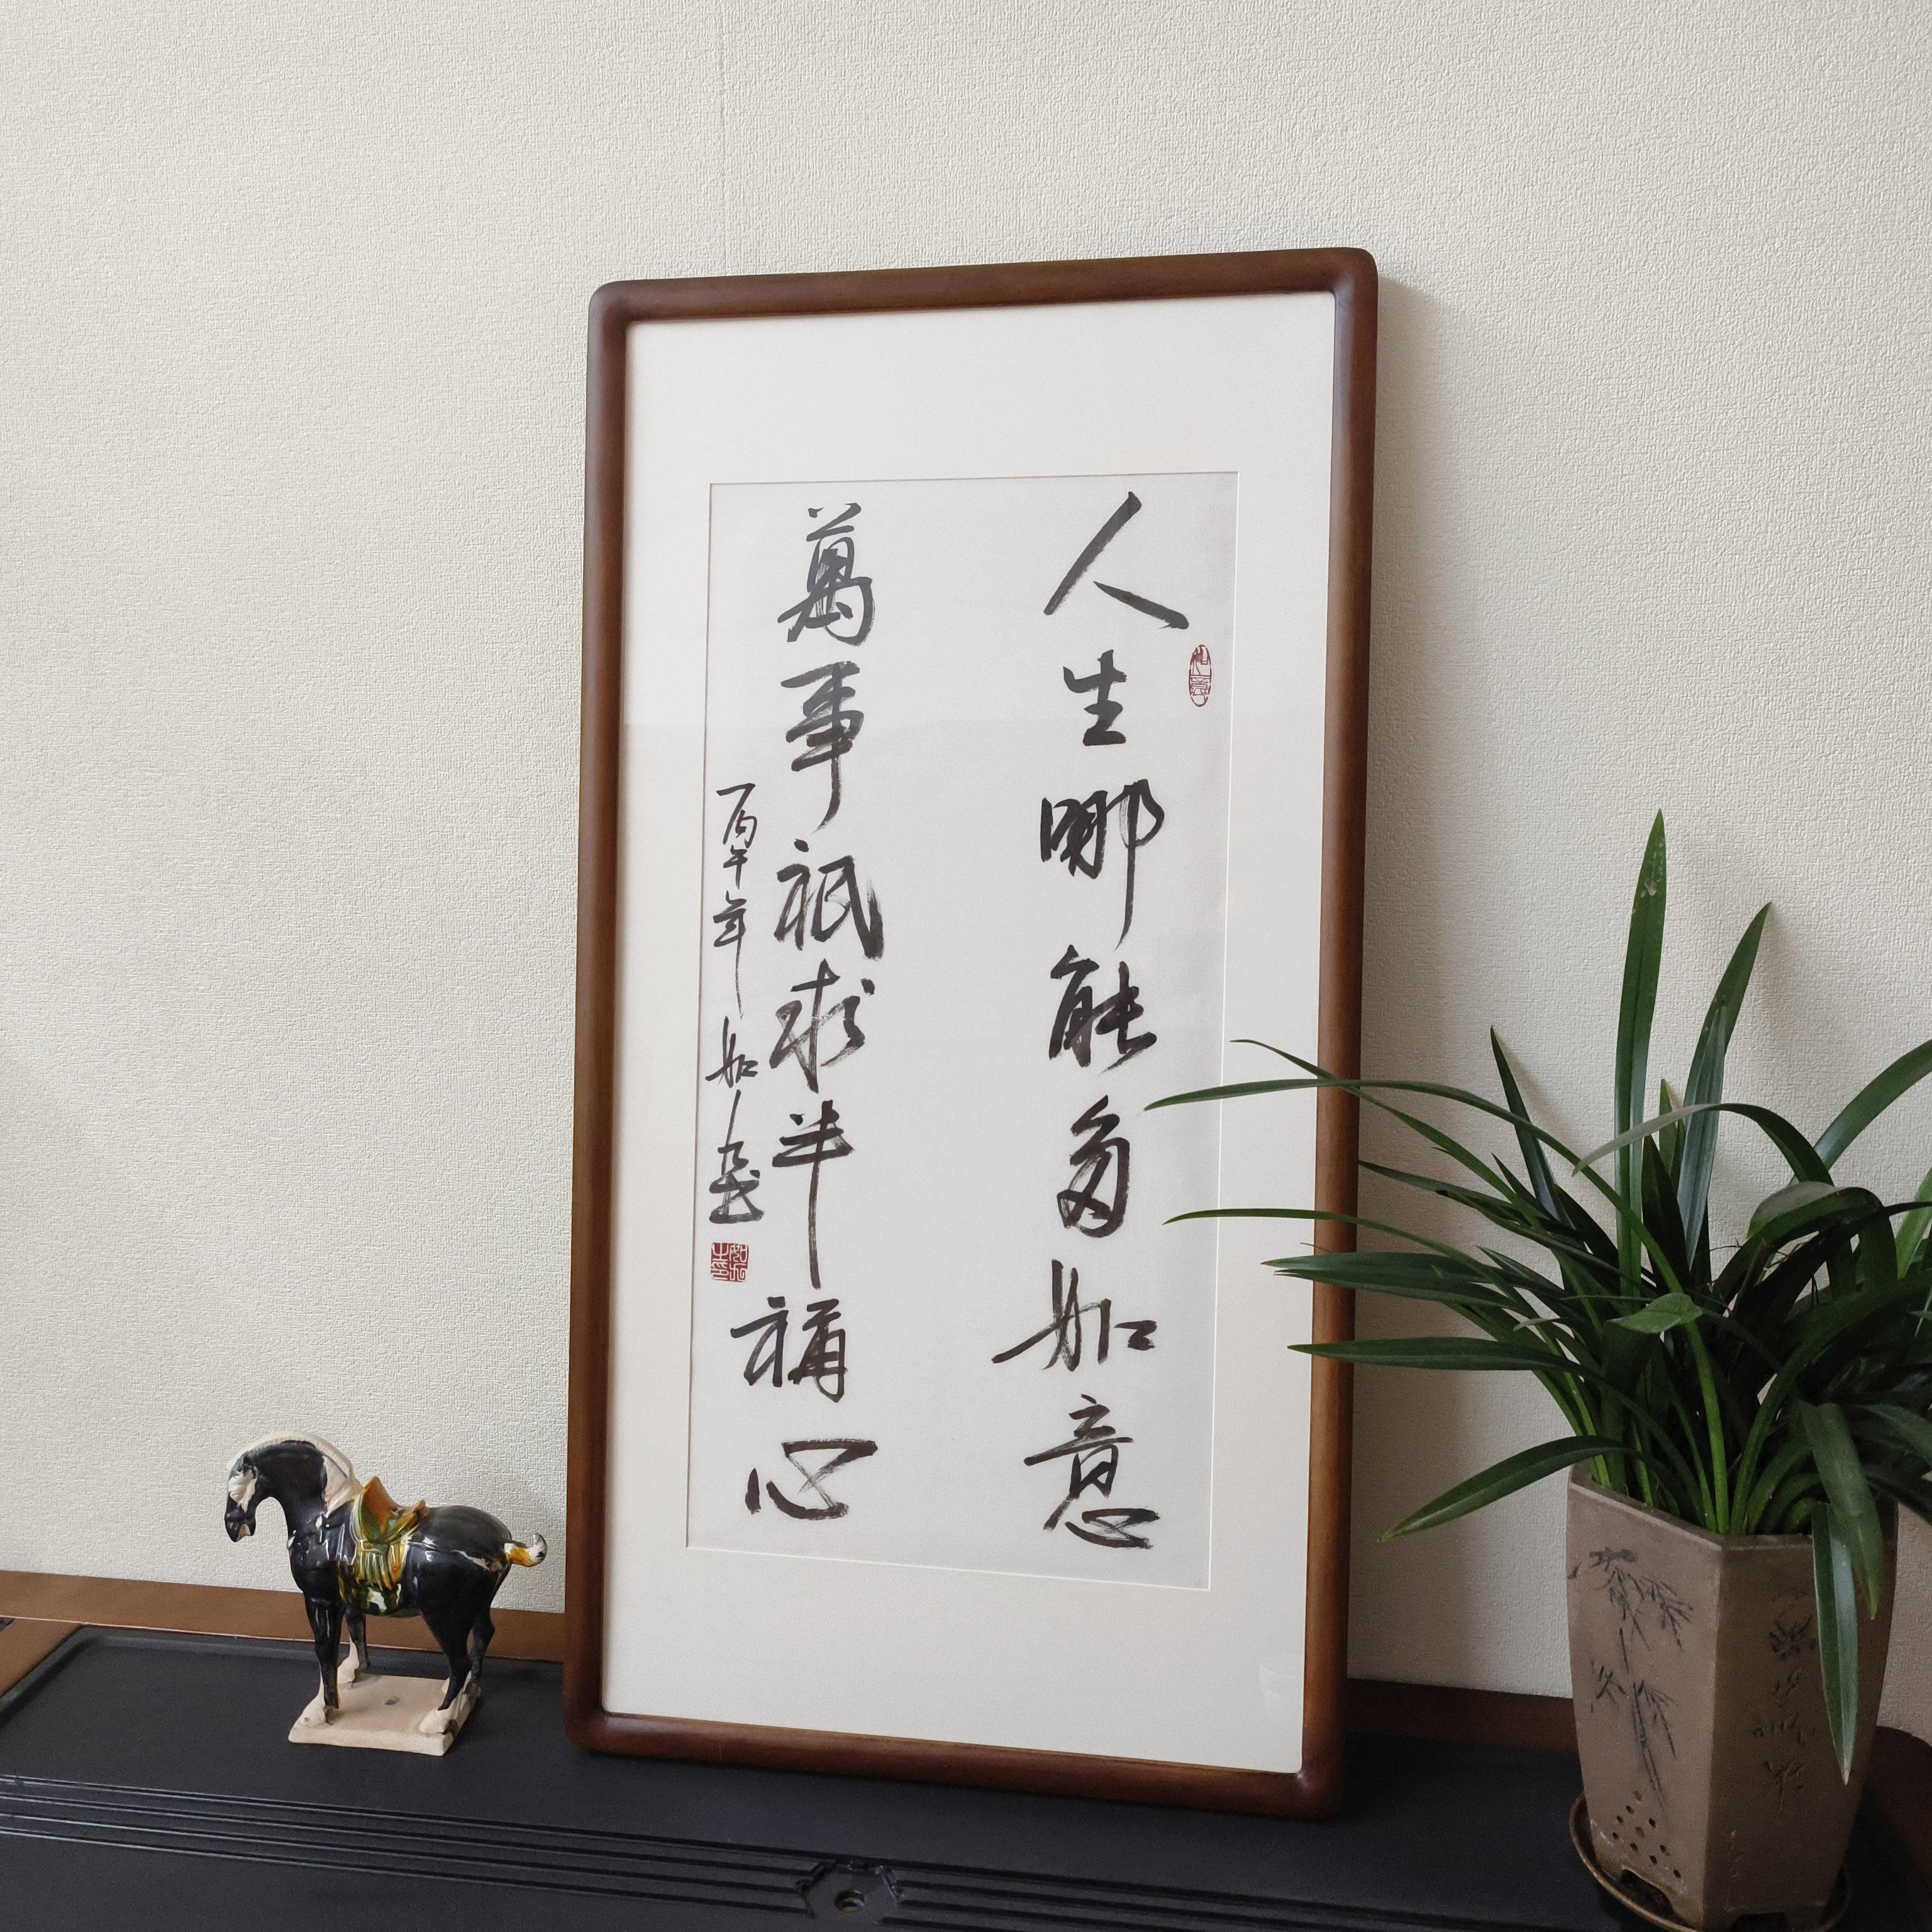 人生哪能多如意
萬事祇求半稱心
丙午年 如
如意